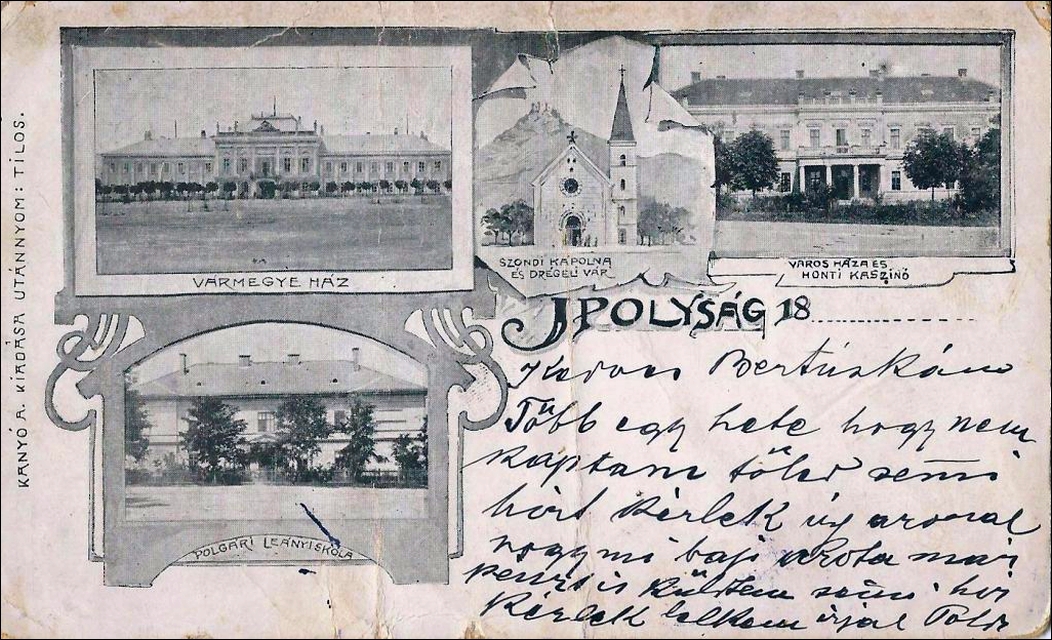 KANYÓ A. KIADÁSA UTÁNNYOM: TILOS.
VÁRMEGYE HÁZ
SZONDI KÁPOLNA
ÉS DREGELI VÁR
VÁROS HÁZA ÉS
HONTI KASZINÓ
IPOLYSÁG 18
POLGÁRI LEÁNYISKOLA
Kedves Bertúskám
Több egy hete hogy nem
kaptam tőled semi
hírt kérlek úgy
hogy mi baj mai
penzt is küldtem semi hír
Kérlek lelkem írjál